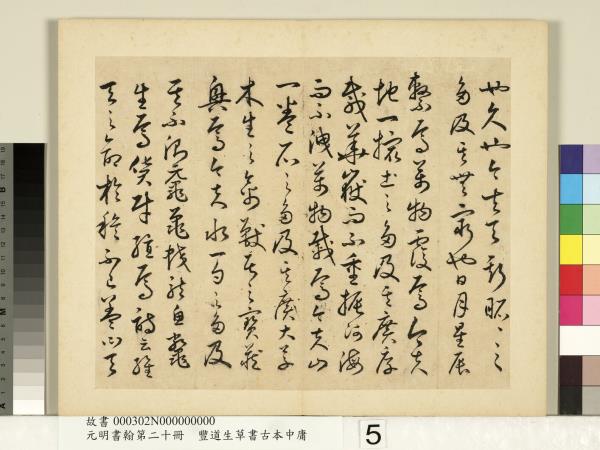 也久也今夫天斯昭〻之
多及其無窮也日月星辰
繫焉萬物覆焉今夫
地一撮土之多及其廣厚
載華嶽而不重振河海
而不洩萬物載焉今夫山
一卷石之多及其廣大草
木生之禽獸居之寶藏
興焉今夫水一勺之多及
其不測黿鼉蛟龍魚鼈
生焉貨財殖焉詩云維
天之命於穆不已蓋曰天
故書 000302N000000000
元明書翰第二十冊 豐道生草書古本中庸
5